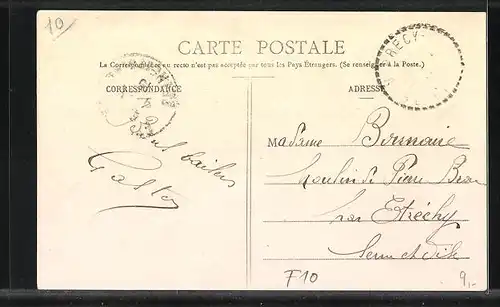 10
CARTE POSTALE
La Correspondance au recto n'est pas acceptée par tous les Pays Étrangers. (Se renseigner à la Poste.)
CORRESPONDANCE
ADRESSE
Madame
baisers
Gaston
Moulin de Pierre
par Etréchy
Seine et Oise
F10
9,-